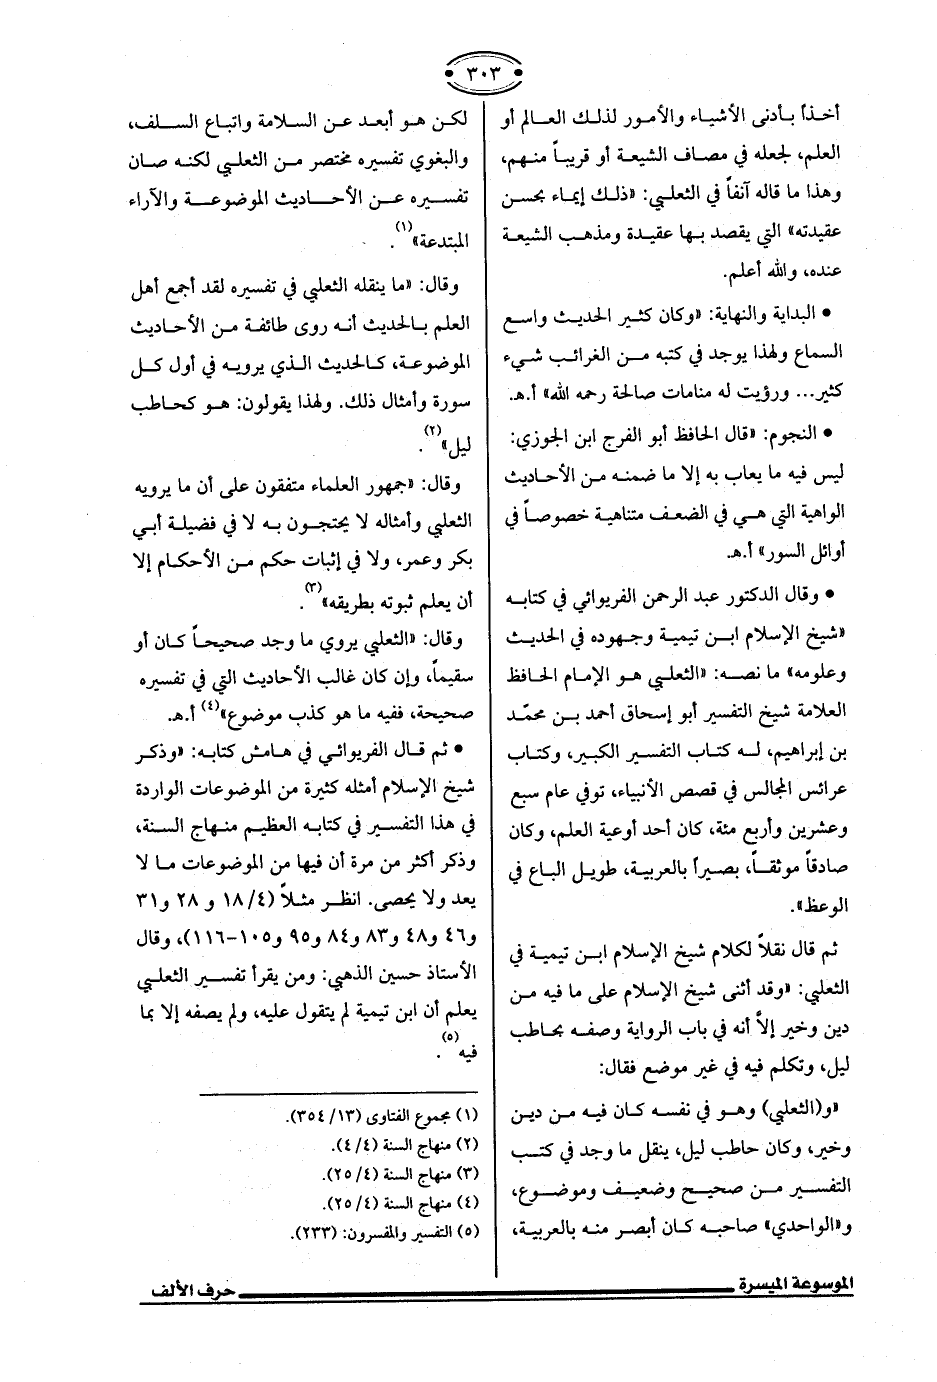 ٣٠٣
أخذاً بأدنى الأشياء والأمور لذلك العالم أو
العلم، لجعله في مصاف الشيعة أو قريباً منهم،
وهذا ما قاله آنفاً في الثعلبي: «ذلك إيماء بحسن
عقيدته» التي يقصد بها عقيدة ومذهب الشيعة
عنده، والله أعلم.
• البداية والنهاية: «وكان كثير الحديث واسع
السماع ولهذا يوجد في كتبه من الغرائب شيء
كثير... ورؤيت له منامات صالحة رحمه الله» أ.هـ.
• النجوم: «قال الحافظ أبو الفرج ابن الجوزي:
ليس فيه ما يعاب به إلا ما ضمنه من الأحاديث
الواهية التي هي في الضعف متناهية خصوصاً في
أوائل السور» أ.هـ.
• وقال الدكتور عبد الرحمن الفريوائي في كتابه
«شيخ الإسلام ابن تيمية وجهوده في الحديث
وعلومه» ما نصه: «الثعلبي هو الإمام الحافظ
العلامة شيخ التفسير أبو إسحاق أحمد بن محمّد
بن إبراهيم، له كتاب التفسير الكبير، وكتاب
عرائس المجالس في قصص الأنبياء، توفي عام سبع
وعشرين وأربع مئة، كان أحد أوعية العلم، وكان
صادقاً موثقاً، بصيراً بالعربية، طويل الباع في
الوعظ».
ثم قال نقلاً لكلام شيخ الإسلام ابن تيمية في
الثعلبي: «وقد أثنى شيخ الإسلام على ما فيه من
دين وخير إلاَّ أنه في باب الرواية وصفه بحاطب
ليل، وتكلم فيه في غير موضع فقال:
«و(الثعلبي) وهو في نفسه كان فيه من دين
وخير، وكان حاطب ليل، ينقل ما وجد في كتب
التفسير من صحيح وضعيف وموضوع،
و«الواحدي» صاحبه كان أبصر منه بالعربية،
لكن هو أبعد عن السلامة واتباع السلف،
والبغوي تفسيره مختصر من الثعلبي لكنه صان
تفسيره عن الأحاديث الموضوعة والآراء
المبتدعة»(١).
وقال: «ما ينقله الثعلبي في تفسيره لقد أجمع أهل
العلم بالحديث أنه روى طائفة من الأحاديث
الموضوعة، كالحديث الذي يرويه في أول كل
سورة وأمثال ذلك. ولهذا يقولون: هو كحاطب
ليل»(٢).
وقال: «جمهور العلماء متفقون على أن ما يرويه
الثعلبي وأمثاله لا يحتجون به لا في فضيلة أبي
بكر وعمر، ولا في إثبات حكم من الأحكام إلا
أن يعلم ثبوته بطريقه»(٣).
وقال: «الثعلبي يروي ما وجد صحيحاً كان أو
سقيماً، وإن كان غالب الأحاديث التي في تفسيره
صحيحة، ففيه ما هو كذب موضوع»(٤) أ.هـ.
• ثم قال الفريوائي في هامش كتابه: «وذكر
شيخ الإسلام أمثله كثيرة من الموضوعات الواردة
في هذا التفسير في كتابه العظيم منهاج السنة،
وذكر أكثر من مرة أن فيها من الموضوعات ما لا
يعد ولا يحصى. انظر مثلاً (٤/ ١٨ و ٢٨ و٣١
و٤٦ و٤٨ و٨٣ و٨٤ و٩٥ و١٠٥-١١٦)، وقال
الأستاذ حسين الذهبي: ومن يقرأ تفسير الثعلبي
يعلم أن ابن تيمية لم يتقول عليه، ولم يصفه إلا بما
فيه(٥).
(١) مجموع الفتاوى (١٣/ ٣٥٤).
(٢) منهاج السنة (٤/ ٤).
(٣) منهاج السنة (٤/ ٢٥).
(٤) منهاج السنة (٤/ ٢٥).
(٥) التفسير والمفسرون: (٢٣٣).
الموسوعة الميسرة حرف الألف